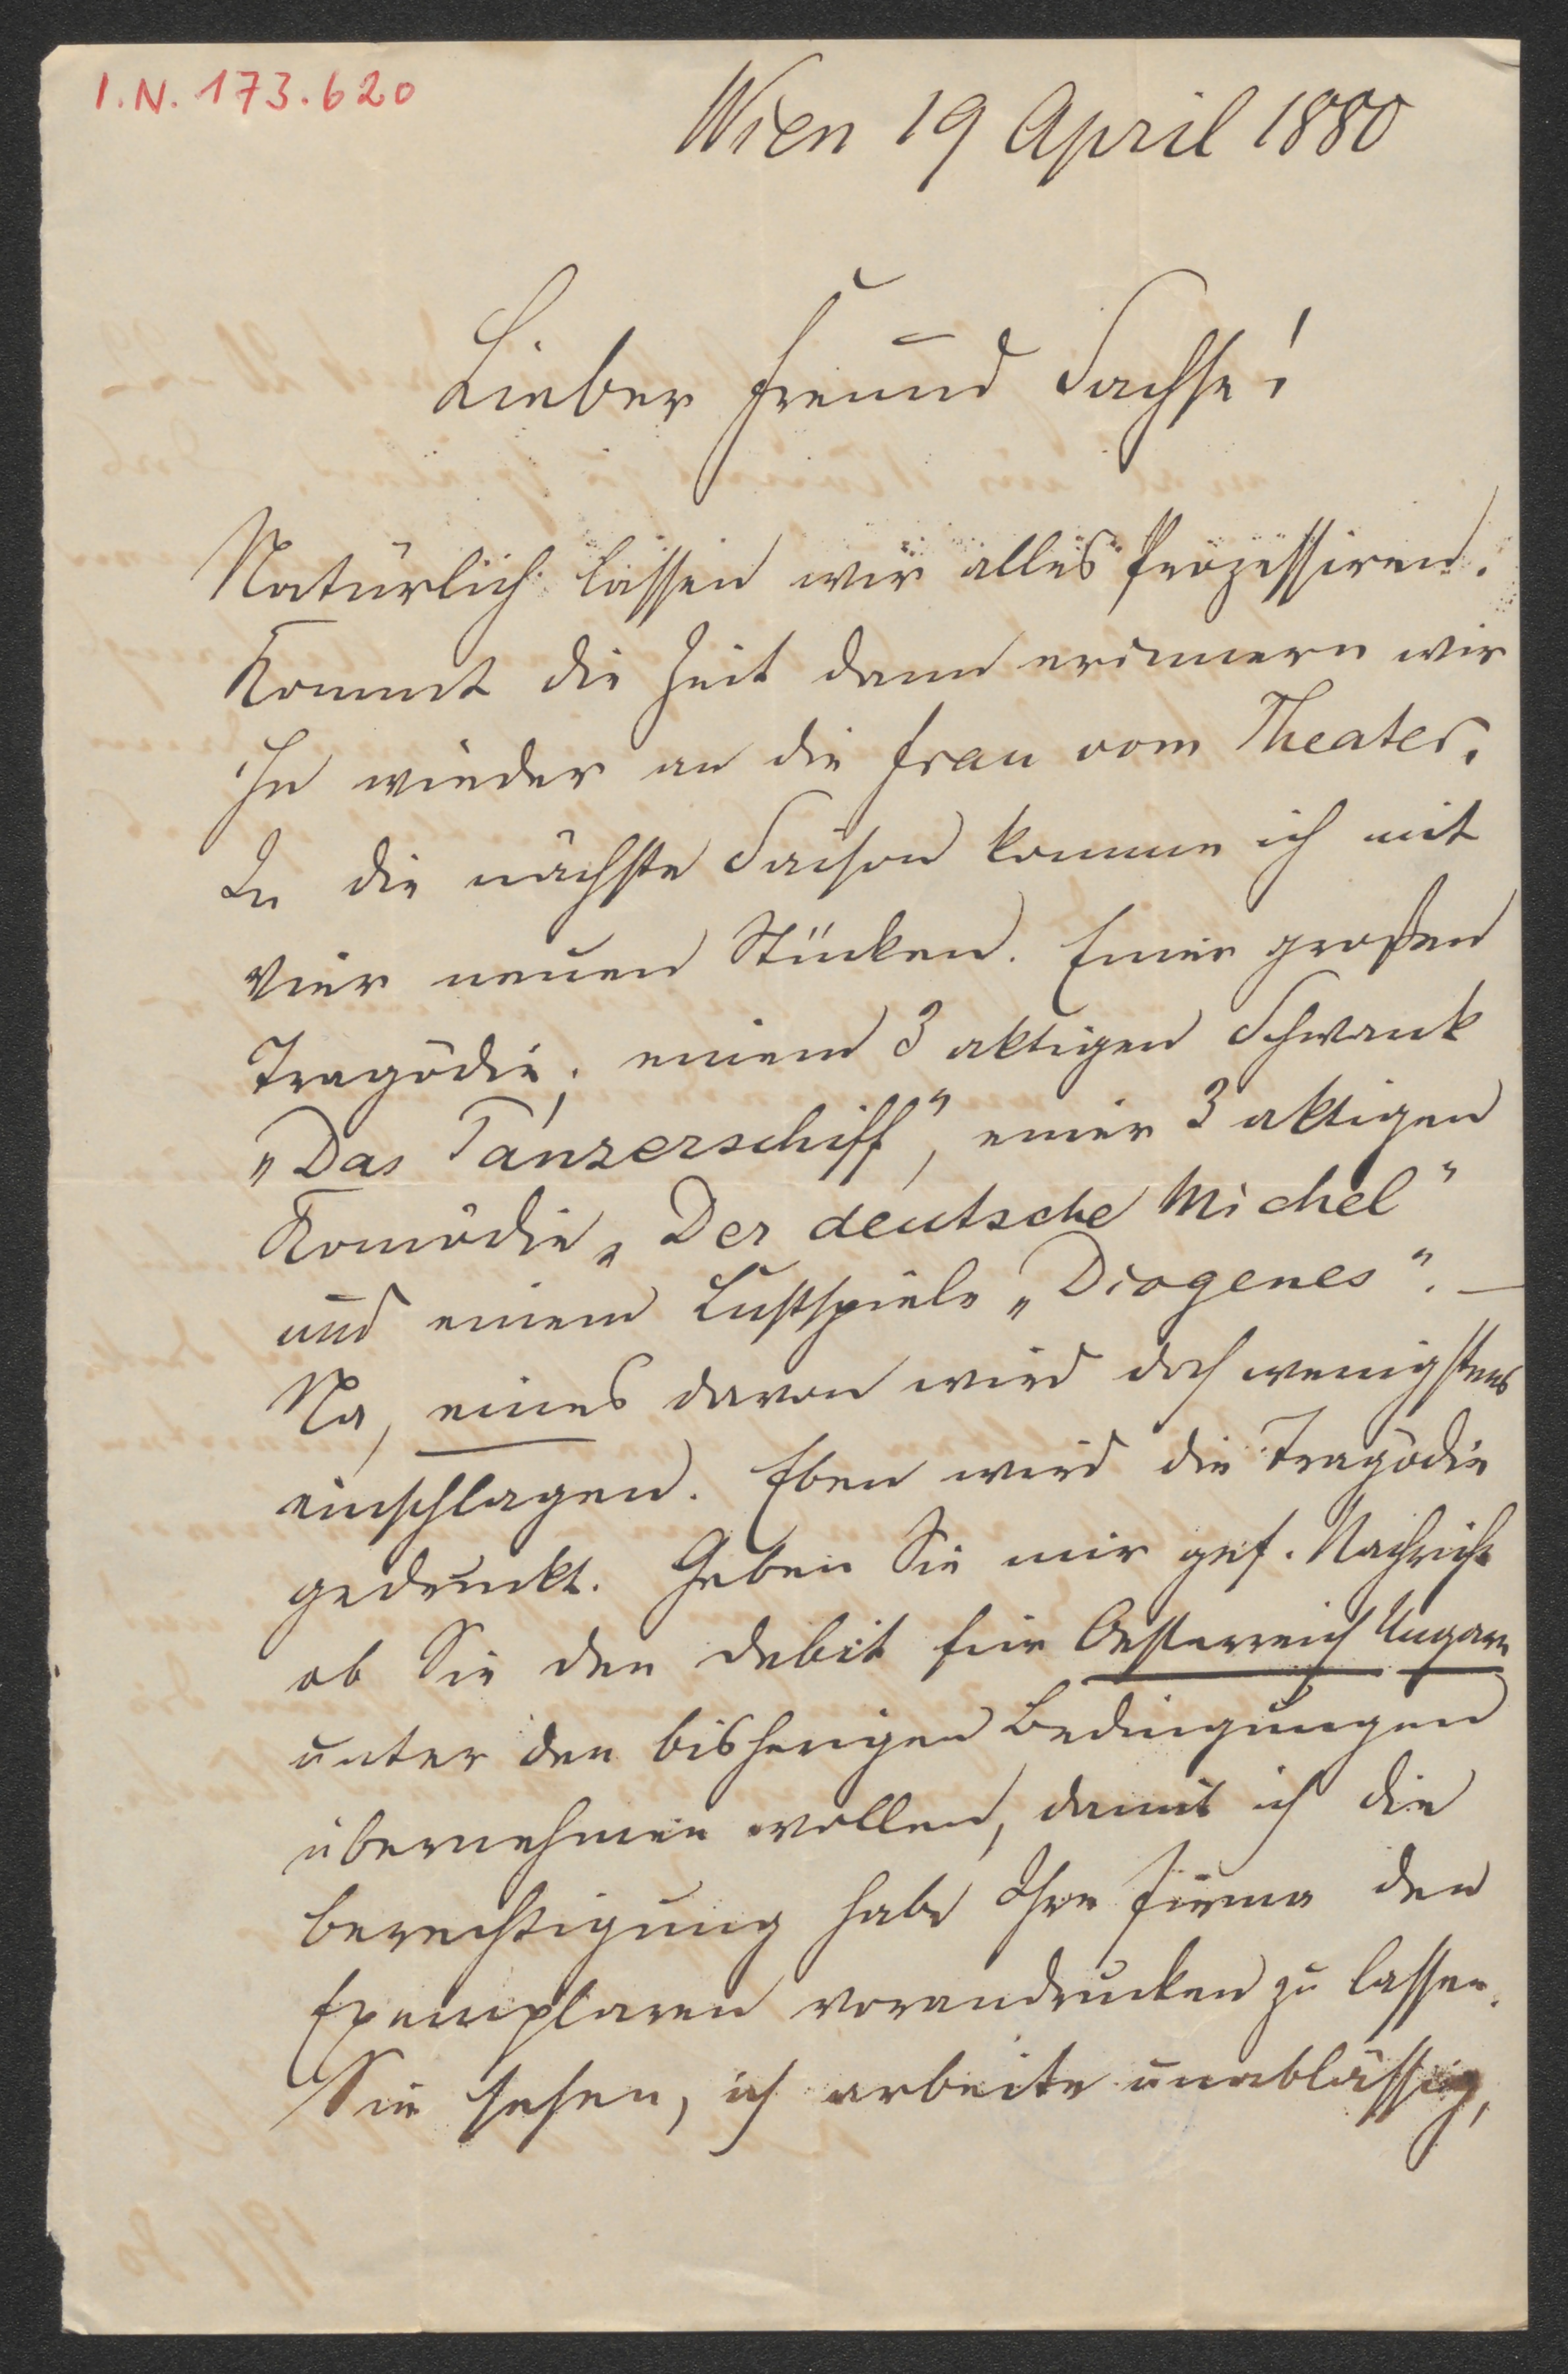 I.N. 173.620
Wien 19 April 1880
Lieber Freund Sachse!
Natürlich lassen wir alles Prozessiren.
Kommt die Zeit dann erinnern wir
ihn wieder an die Frau vom Theater.
In die nächste Saison komme ich mit
vier neuen Stücken. Einer großen
Tragödie, einem 3 aktigen Schwank
„Das Panzerschiff“, einer 3 aktigen
Komödie „Der deutsche Michel“
und einem Lustspiele „Diogenes“. —
Na, eines davon wird doch wenigstens
einschlagen. Eben wird die Tragödie
gedruckt. Geben Sie mir gef. Nachricht
ob Sie den Debit für Oesterreich Ungarn
unter den bisherigen Bedingungen
übernehmen wollen, damit ich die
Berechtigung habe Ihre Firma den
Exemplaren vorandrucken zu lassen.
Sie sehen, ich arbeite unablässig,